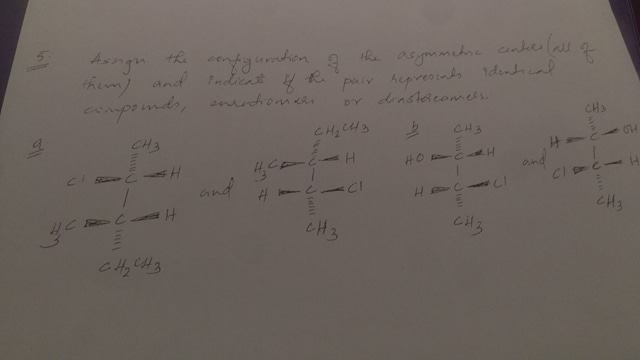 5. Assign the configuration of the asymmetric centres (all of
them) and indicate if the pair represents identical
compounds, enantiomers or diastereomers.
a
CH3
Cl C H
H3C C H
CH2CH3
and
CH2CH3
H3C C H
H C Cl
CH3
b
CH3
HO C H
H C Cl
CH3
and
CH3
H C OH
Cl C H
CH3